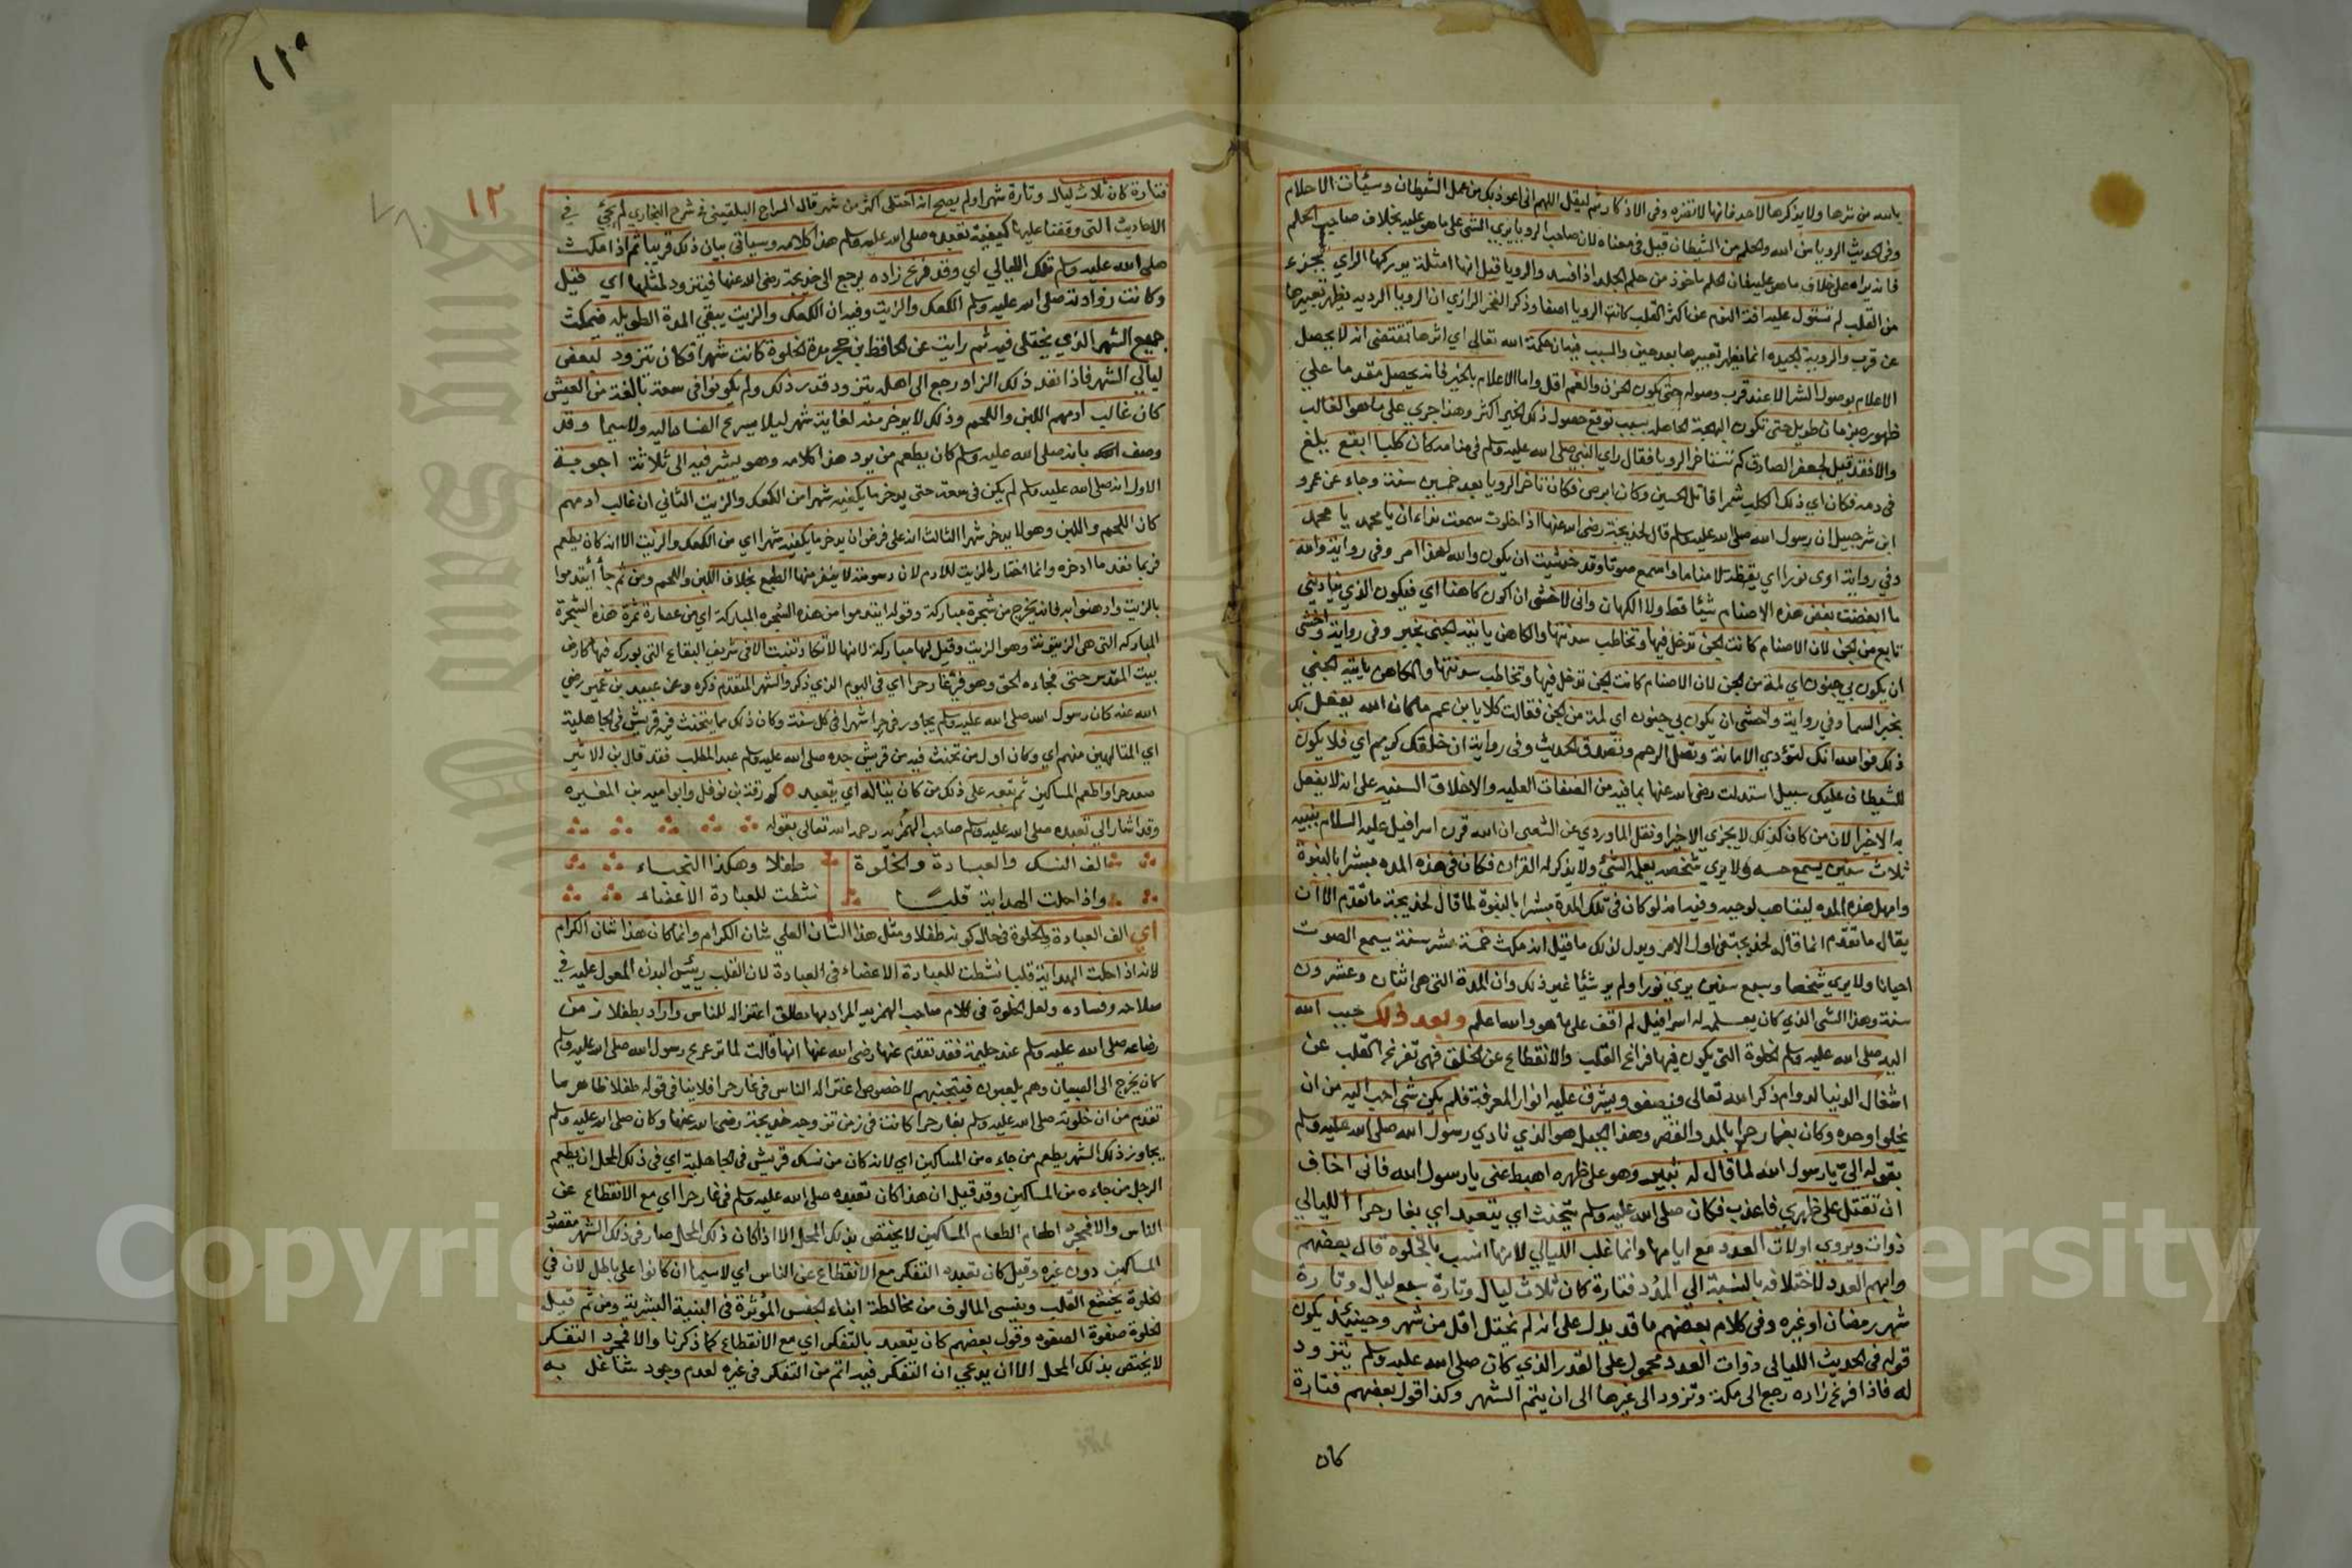 بالله من شرها ولا يذكرها لاحد فانها لا تضره وفي الاذكار ثم ليقل اللهم اني اعوذ بك من عمل الشيطان وسيئات الاحلام
وفي الحديث الرويا من الله والحلم من الشيطان قيل في معناه لان صاحب الرويا يري الشي على ما هو عليه بخلاف صاحب الحلم
فانه يراه على خلاف ما هو عليه فان الحلم ماخوذ من حلم الجلد اذا فسد والرويا قيل انها امثلة يدركها الراي بجزء
من القلب لم تستول عليه افة النوم عن اكثر القلب كانت الرويا اصفا وذكر الفخر الرازي ان الرويا الرديه يظهر تعبيرها
عن قرب والروية الجيده انما يظهر تعبيرها بعد حين والسبب فيه ان حكمة الله تعالى اي اثرها تقتضي انه لا يحصل
الاعلام بوصول الشر الا عند قرب وصوله حتى يكون الحزن والغم اقل واما الاعلام بالخير فانه يحصل مقدما علي
ظهوره بزمان طويل حتى تكون البهجة الحاصله بسبب توقع حصول ذلك الخير اكثر وهذا جري على ما هو الغالب
والا فقد قيل لجعفر الصادق كم تتاخر الرويا فقال راي النبي صلى الله عليه وسلم في منامه كان كلبا ابقع يلغ
في دمه فكان اي ذلك الكلب شمرا قاتل الحسين وكان ابرص فكان تاخر الرويا بعد خمسين سنة وجاء عن عمرو
ابن شرحبيل ان رسول الله صلى الله عليه وسلم قال لخديجة رضي الله عنها اذا خلوت سمعت نداء ان يا محمد يا محمد
وفي رواية اري نورا اي يقظة لا مناما واسمع صوتا وقد خشيت ان يكون والله لهذا امر وفي رواية والله
ما ابغضت بغض هذه الاصنام شيئا قط ولا الكهان واني لاخشى ان اكون كاهنا اي فيكون الذي يناديني
تابع من الجن لان الاصنام كانت الجن تدخل فيها وتخاطب سدنتها والكاهن ياتيه الجني بخبر وفي رواية واخشى
ان يكون بي جنون اي لمة من الجن لان الاصنام كانت الجن تدخل فيها وتخاطب سدنتها والكاهن ياتيه الجني
بخبر السما وفي رواية واخشى ان يكون بي جنون اي لمة من الجن فقالت كلا يا بن عم ما كان الله يفعل بك
ذلك فوالله انك لتؤدي الامانة وتصل الرحم وتصدق الحديث وفي رواية ان خلقك كريم اي فلا يكون
للشيطان عليك سبيل استدلت رضي الله عنها بما فيه من الصفات العليه والاخلاق السنيه على انه لا يفعل
به الا خيرا لان من كان كذلك لا يجزي الا خيرا ونقل الماوردي عن الشعبي ان الله قرن اسرافيل عليه السلام بنبيه
ثلاث سنين يسمع حسه ولا يري شخصه يعلمه الشي ولا يذكر له القران فكان في هذه المده مبشرا بالنبوة
وامهل هذه المده ليتاهب لوحيه وفيه انه لو كان في تلك المدة مبشرا بالنبوة لما قال لخديجة ما تقدم الا ان
يقال ما تقدم انما قاله لخديجة في اول الامر ويدل لذلك ما قيل انه مكث خمسة عشر سنة يسمع الصوت
احيانا ولا يري شخصا وسبع سنين يري نورا ولم ير شيئا غير ذلك وان المدة التي هي اثنان وعشرون
سنة وهذا الشي الذي كان يعلمه له اسرافيل لم اقف على ما هو والله اعلم وبعد ذلك حبب الله
اليه صلى الله عليه وسلم الخلوة التي يكون فيها فراغ القلب والانقطاع عن الخلق فهي تفرغ القلب عن
اشغال الدنيا لدوام ذكر الله تعالى فيصفو ويشرق عليه انوار المعرفة فلم يكن شي احب اليه من ان
يخلو وحده وكان بغار حرا بالمد والقصر وهذا الجبل هو الذي نادي رسول الله صلى الله عليه وسلم
بقوله الي يا رسول الله لما قال له ثبير وهو على ظهره اهبط عني يا رسول الله فاني اخاف
ان تقتل على ظهري فاعذب فكان صلى الله عليه وسلم يتحنث اي يتعبد اي بغار حرا الليالي
ذوات ويروي اولات العدد مع ايامها وانما غلب الليالي لانها انسب بالخلوه قال بعضهم
وابهم العدد لاختلافه بالنسبة الي المدد فتارة كان ثلاث ليال وتارة سبع ليال وتارة
شهر رمضان او غيره وفي كلام بعضهم ما قد يدل على انه لم يختل اقل من شهر وحينئذ يكون
قوله في الحديث الليالي ذوات العدد محمول على القدر الذي كان صلى الله عليه وسلم يتزود
له فاذا فرغ زاده رجع الى مكة وتزود الى غيرها الى ان يتم الشهر وكذا قول بعضهم فتارة
كان
١٢
فتارة كان ثلاث ليال وتارة شهرا ولم يصح انه اختلى اكثر من شهر قال السراج البلقيني في شرح البخاري لم يجئ في
الاحاديث التي وقفنا عليها كيفية تعبده صلى الله عليه وسلم هذا كلامه وسياتي بيان ذلك قريبا ثم اذا مكث
صلى الله عليه وسلم تلك الليالي اي وقد فرغ زاده يرجع الى خديجة رضي الله عنها فيتزود لمثلها اي قيل
وكانت زوادته صلى الله عليه وسلم الكعك والزيت وفيه ان الكعك والزيت يبقي المدة الطويله فيمكث
جميع الشهر الذي يختلى فيه ثم رايت عن الحافظ بن حجر مدة الخلوة كانت شهرا فكان يتزود لبعض
ليالي الشهر فاذا نفد ذلك الزاد رجع الى اهله يتزود قدر ذلك ولم يكونوا في سعة بالغة من العيش
كان غالب ادمهم اللبن واللحم وذلك لا يدخر منه لغاية شهر ليلا يسرع الفساد اليه ولا سيما وقد
وصف بانه صلى الله عليه وسلم كان يطعم من يرد هذا كلامه وهو يشير فيه الى ثلاثة اجوبة
الاول انه صلى الله عليه وسلم لم يكن في سعة حتى يدخر ما يكفيه شهرا من الكعك والزيت الثاني ان غالب ادمهم
كان اللحم واللبن وهو لا يدخر شهرا الثالث انه على فرض ان يدخر ما يكفيه شهرا اي من الكعك والزيت الا انه كان يطعم
فربما نفد ما ادخره وانما اختار الزيت للادم لان دسومته لا ينفر منها الطبع بخلاف اللبن واللحم ومن ثم جا ائتدموا
بالزيت وادهنوا به فانه يخرج من شجرة مباركة وقوله ائتدموا من هذه الشجره المباركة اي من عصارة ثمرة هذه الشجرة
المباركه التي هي الزيتونة وهو الزيت وقيل لها مباركة لانها لا تكاد تنبت الا في شريف البقاع التي بورك فيها كارض
بيت المقدس حتى فجاءه الحق وهو في غار حرا اي في اليوم الذي ذكر والشهر المتقدم ذكره وعن عبيد بن عمير رضي
الله عنه كان رسول الله صلى الله عليه وسلم يجاور في حرا شهرا في كل سنة وكان ذلك مما يتحنث فيه قريش في الجاهلية
اي المتالهين منهم اي وكان اول من تحنث فيه من قريش جده صلى الله عليه وسلم عبد المطلب فقد قال بن الاثير
صعد حرا واطعم المساكين ثم تبعه على ذلك من كان يتاله اي يتعبد كورقة بن نوفل وابو اميه بن المغيره
وقد اشار الي تعبده صلى الله عليه وسلم صاحب الهمزية رحمه الله تعالى بقوله
الف النسك والعبادة والخلوة طفلا وهكذا النجباء
واذا حلت الهداية قلبا نشطت للعبادة الاعضاء
اي الف العبادة والخلوة في حال كونه طفلا ومثل هذا الشان العلي شان الكرام وانما كان هذا شان الكرام
لانه اذا حلت الهداية قلبا نشطت للعبادة الاعضاء في العبادة لان القلب رييس البدن المعول عليه في
صلاحه وفساده ولعل الخلوة في كلام صاحب الهمزية المراد بها مطلق اعتزاله للناس واراد بطفلا زمن
رضاعه صلى الله عليه وسلم عند حليمة فقد تقدم عنها رضي الله عنها انها قالت لما ترعرع رسول الله صلى الله عليه وسلم
كان يخرج الى الصبيان وهم يلعبون فيتجنبهم لا خصوص اعتزاله الناس في غار حرا فلا ينافي قوله طفلا ظاهر ما
تقدم من ان خلوته صلى الله عليه وسلم بغار حرا كانت في زمن تزوجه خديجة رضي الله عنها وكان صلى الله عليه وسلم
يجاور ذلك الشهر يطعم من جاءه من المساكين اي لانه كان من نسك قريش في الجاهلية اي في ذلك المحل ان يطعم
الرجل من جاءه من المساكين وقد قيل ان هذا كان تعبده صلى الله عليه وسلم في غار حرا اي مع الانقطاع عن
الناس والا فمجرد اطعام الطعام المساكين لا يختص بذلك المحل الا اذا كان ذلك المحل صار في ذلك الشهر مقصود
المساكين دون غيره وقيل كان تعبده التفكر مع الانقطاع عن الناس اي لا سيما ان كانوا على باطل لان في
الخلوة يخشع القلب وينسى المالوف من مخالطة ابناء الجنس المؤثرة في البنية البشرية ومن ثم قيل
الخلوة صفوة الصفوه وقول بعضهم كان يتعبد بالتفكر اي مع الانقطاع كما ذكرنا والا فمجرد التفكر
لا يختص بذلك المحل الا ان يدعي ان التفكر فيه اتم من التفكر في غيره لعدم وجود شاغل به
Copyright © King Saud University